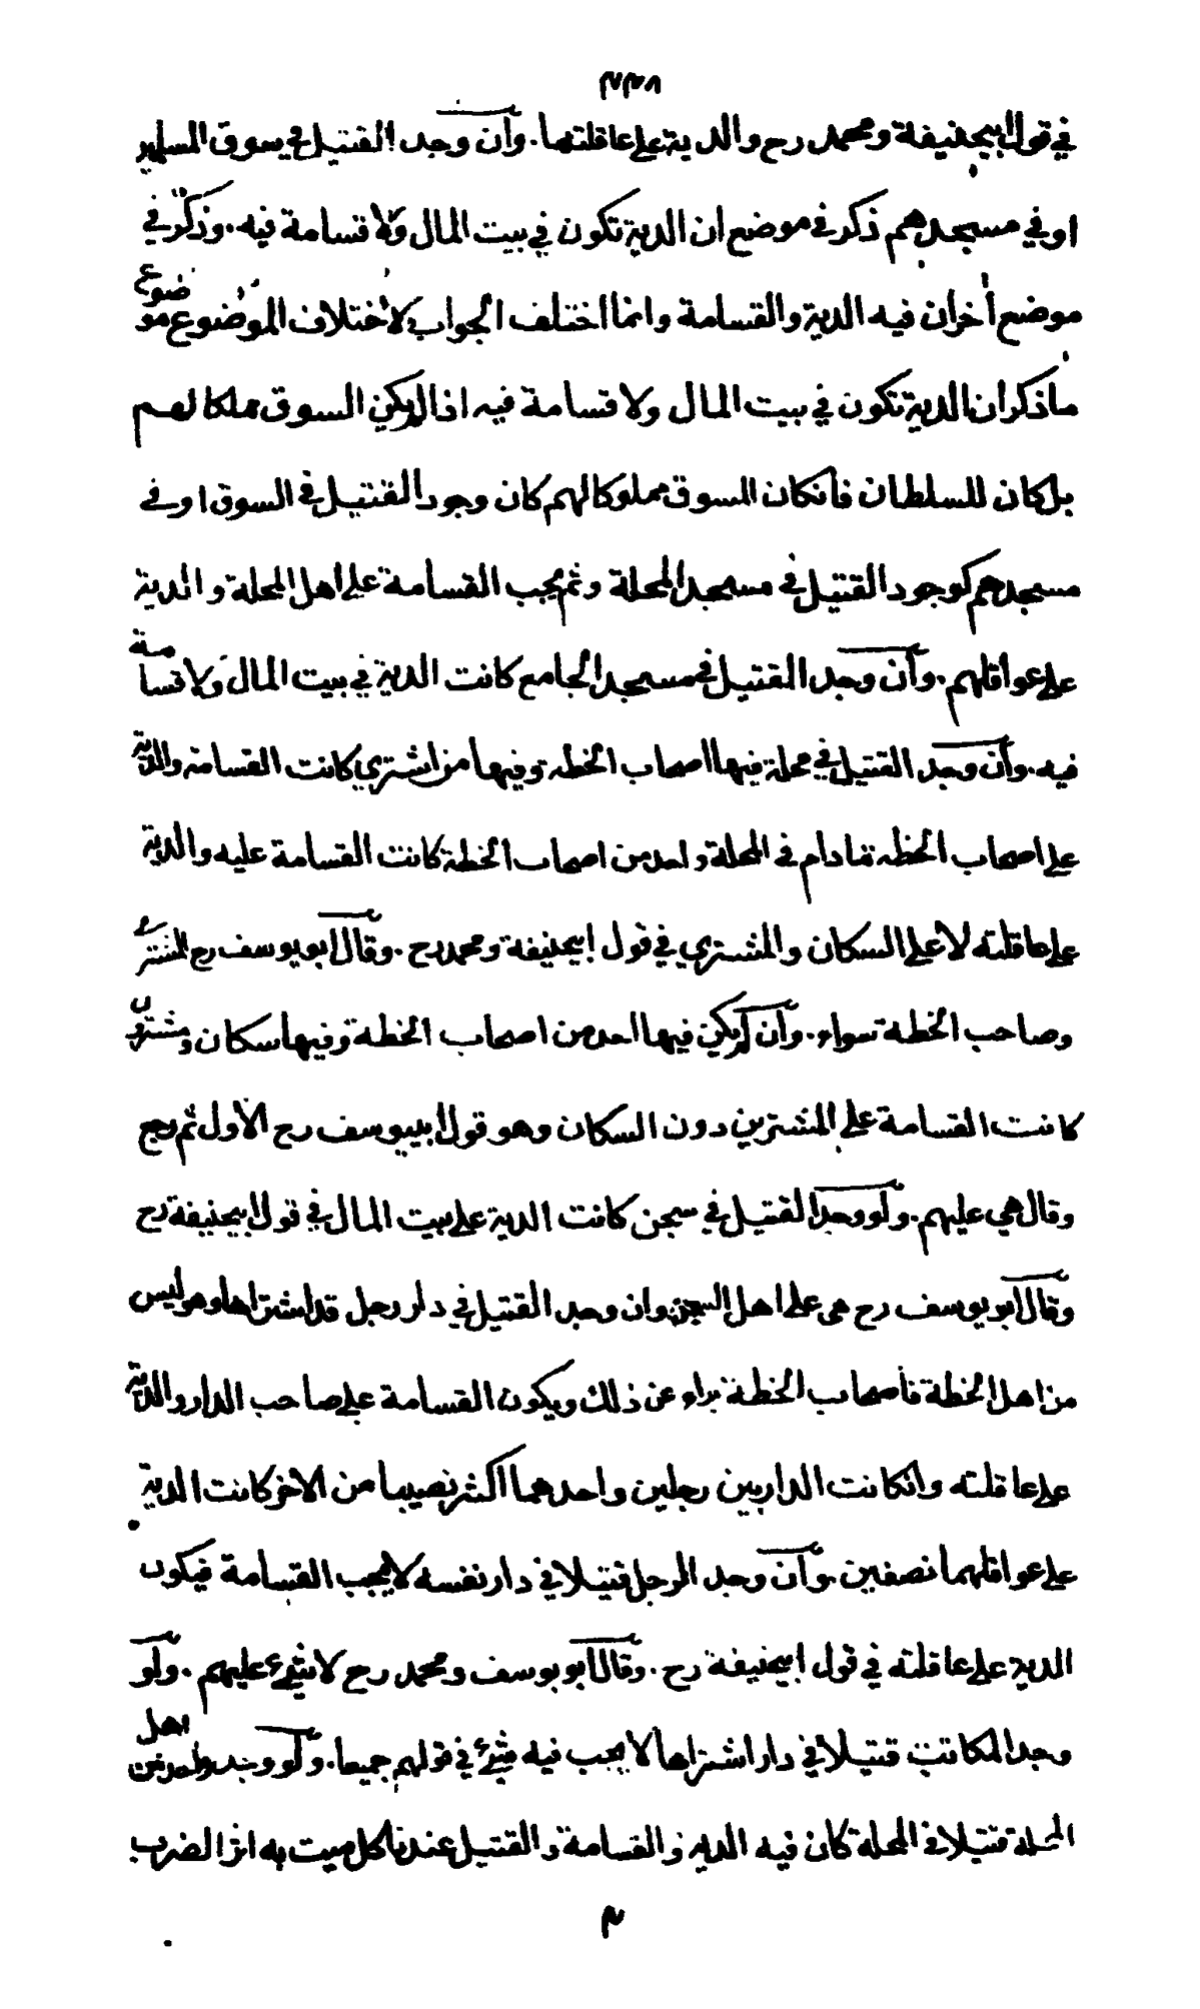 في قول ابيحنيفة ومحمد رح والدية على عاقلتها. وان وجد القتيل في سوق المسلمين
او في مسجدهم ذكر في موضع ان الدية تكون في بيت المال ولا قسامة فيه. وذكر في
موضع أخر ان فيه الدية والقسامة وانما اختلف الجواب لاختلاف الموضوع موضوع
ما ذكر ان الدية تكون في بيت المال ولا قسامة فيه اذا لم يكن السوق ملكا لهم
بل كان للسلطان فانكان السوق مملوكا لهم كان وجود القتيل في السوق او في
مسجدهم كوجود القتيل في مسجد المحلة وثم يجب القسامة على اهل المحلة والدية
على عواقلهم. وان وجد القتيل في مسجد الجامع كانت الدية في بيت المال ولا قسامة
فيه. وان وجد القتيل في محلة فيها اصحاب الخطه وفيها من اشتري كانت القسامة والدية
على اصحاب الخطه ما دام في المحلة واحد من اصحاب الخطة كانت القسامة عليه والدية
على عاقلته لا على السكان والمشتري في قول ابيحنيفة ومحمد رح. وقال ابو يوسف رح المشترى
وصاحب الخطة سواء. وان لم يكن فيها احد من اصحاب الخطة وفيها سكان ومشترون
كانت القسامة على المشترين دون السكان وهو قول ابييوسف رح الاول ثم رجع
وقال هي عليهم. ولو وجد القتيل في سجن كانت الدية على بيت المال في قول ابيحنيفة رح
وقال ابو يوسف رح هى على اهل السجن وان وجد القتيل في دار رجل قد اشتراها وهو ليس
من اهل الخطة فاصحاب الخطة براء عن ذلك ويكون القسامة على صاحب الدار والدية
على عاقلته وانكانت الدار بين رجلين واحدهما اكثر نصيبا من الاخر كانت الدية
على عواقلهما نصفين. وان وجد الرجل قتيلا في دار نفسه لا يجب القسامة فيكون
الدية على عاقلته في قول ابيحنيفة رح. وقال ابو يوسف ومحمد رح لا شيء عليهم. ولو
وجد المكاتب قتيلا في دار اشتراها لا يجب فيه شيء في قولهم جميعا. ولو وجد واحد من اهل
المحلة قتيلا في المحلة كان فيه الدية والقسامة والقتيل عندنا كل ميت به اثر الضرب